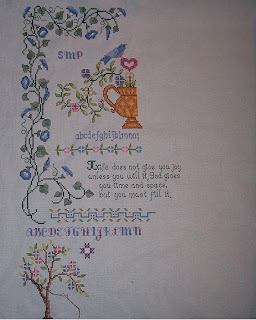 SMD
abcdefghijklmnop
Life does not give you joy
unless you will it, God gives
you time and space,
but you must fill it.
ABCDEFGHIJKLMN